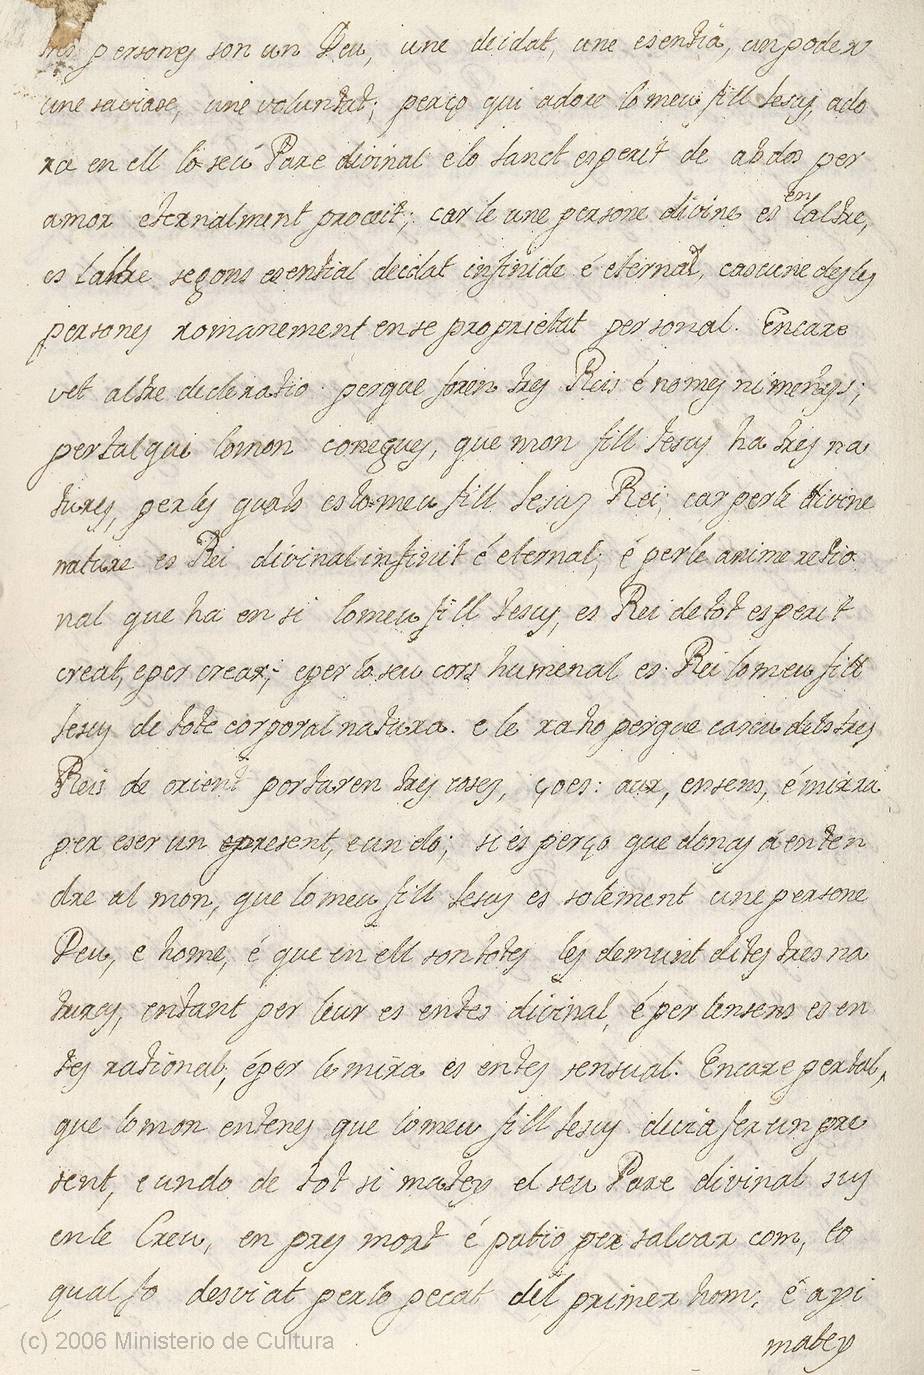 tres persones son un Deu, une deidat, une esentia, un poder
une saviase, une voluntat; perço qui adore lo meu fill Jesus, ado
ra en ell lo seu Pare divinal e lo sanct esperit de abdos per
amor eternalment proceit; car le une persone divine es en laltre,
es laltre segons esential deidat infinide é eternal, cascune desles
persones romanement en se proprietat personal. Encare
vet altre declaratio perque foren tres Reis é nomes ni menys;
per tal qui lo mon conegues, que mon fill Jesus ha tres na
tures, per les quals es lo meu fill Jesus Rei; car per le divine
nature es Rei divinal infinit é eternal; é per le anime ratio
nal que ha en si lo meu fill Jesus, es Rei de tot esperit
creat, e per crear; e per lo seu cors humenal es Rei lo meu fill
Jesus de tote corporal natura. e le raho perque cascu dels tres
Reis de orient portaren tres coses, çoes: aur, ensens, é mirra
per eser un present, e un do; si es perço que donas á enten
dre al mon, que lo meu fill Jesus es solement une persone
Deu, e home, é que en ell son totes les demunt dites tres na
turas, entant per leur es entes divinal, é per lensens es en
tes rational, é per le mira es entes sensual. Encare per tal,
que lo mon entenes que lo meu fill Jesus devia fer un pre
sent, e un do de tot si matey el seu Pare divinal sus
en le Creu, en pres mort é patio per salvar com, lo
qual fo desviat per lo pecat dell primer hom; é axi
matey
(c) 2006 Ministerio de Cultura